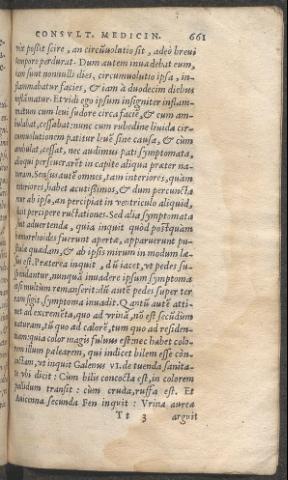 CONSVLT. MEDICIN. 661
vix possit scire, an circũuolutio sit, adeò breui
tempore perdurat. Dum autem inuadebat eum,
iam sunt nonnulli dies, circumuolutio ipsa, in-
flammabatur facies, & iam à duodecim diebus
inflãmatur. Et vidi ego ipsum insigniter inflam-
matum cum leui sudore circa faciẽ, & cum am-
bulabat, cessabat: nunc cum rubedine liuida cir-
cumuolutionem patitur leuẽ sine causa, & cùm
ambulat, cessat, nec audimus pati symptomata,
de quu perseuerarẽt in capite aliqua præter na-
turam. Sensus autẽ omnes, tam interiores, quàm
exteriores, habet acutißimos, & dum percuncta
tur ab ipso, an percipiat in ventriculo aliquid,
ait percipere ructationes. Sed alia symptomata
sunt aduertenda, quia inquit quòd postquam
hemorrhoides fuerunt apertæ, apparuerunt pu-
stulæ quædam, & ab ipsis mirum in modum læ-
sus est. Præterea inquit, dũ iacet, vt pedes su-
spendantur, nunquã inuadere ipsum symptoma
etsi multùm remanserit: dũ autẽ pedes super ter
ram figit, symptoma inuadit. Quantũ autẽ atti-
net ad excremẽta, quo ad vrinã, nõ est secũdùm
naturam, tũ quo ad calorẽ, tum quo ad residen-
tiam: quia color magis fuluus est: nec habet colo-
rem illum palearem, qui indicet bilem esse cõn-
coctam, vt inquit Galenus VI. de tuenda sanita-
te vbi dicit: Cùm bilis concocta est, in colorem
pallidum transit: cùm cruda, ruffa est. Et
Auicenna secunda Fen inquit: Vrina aurea
Tt 3 arguit